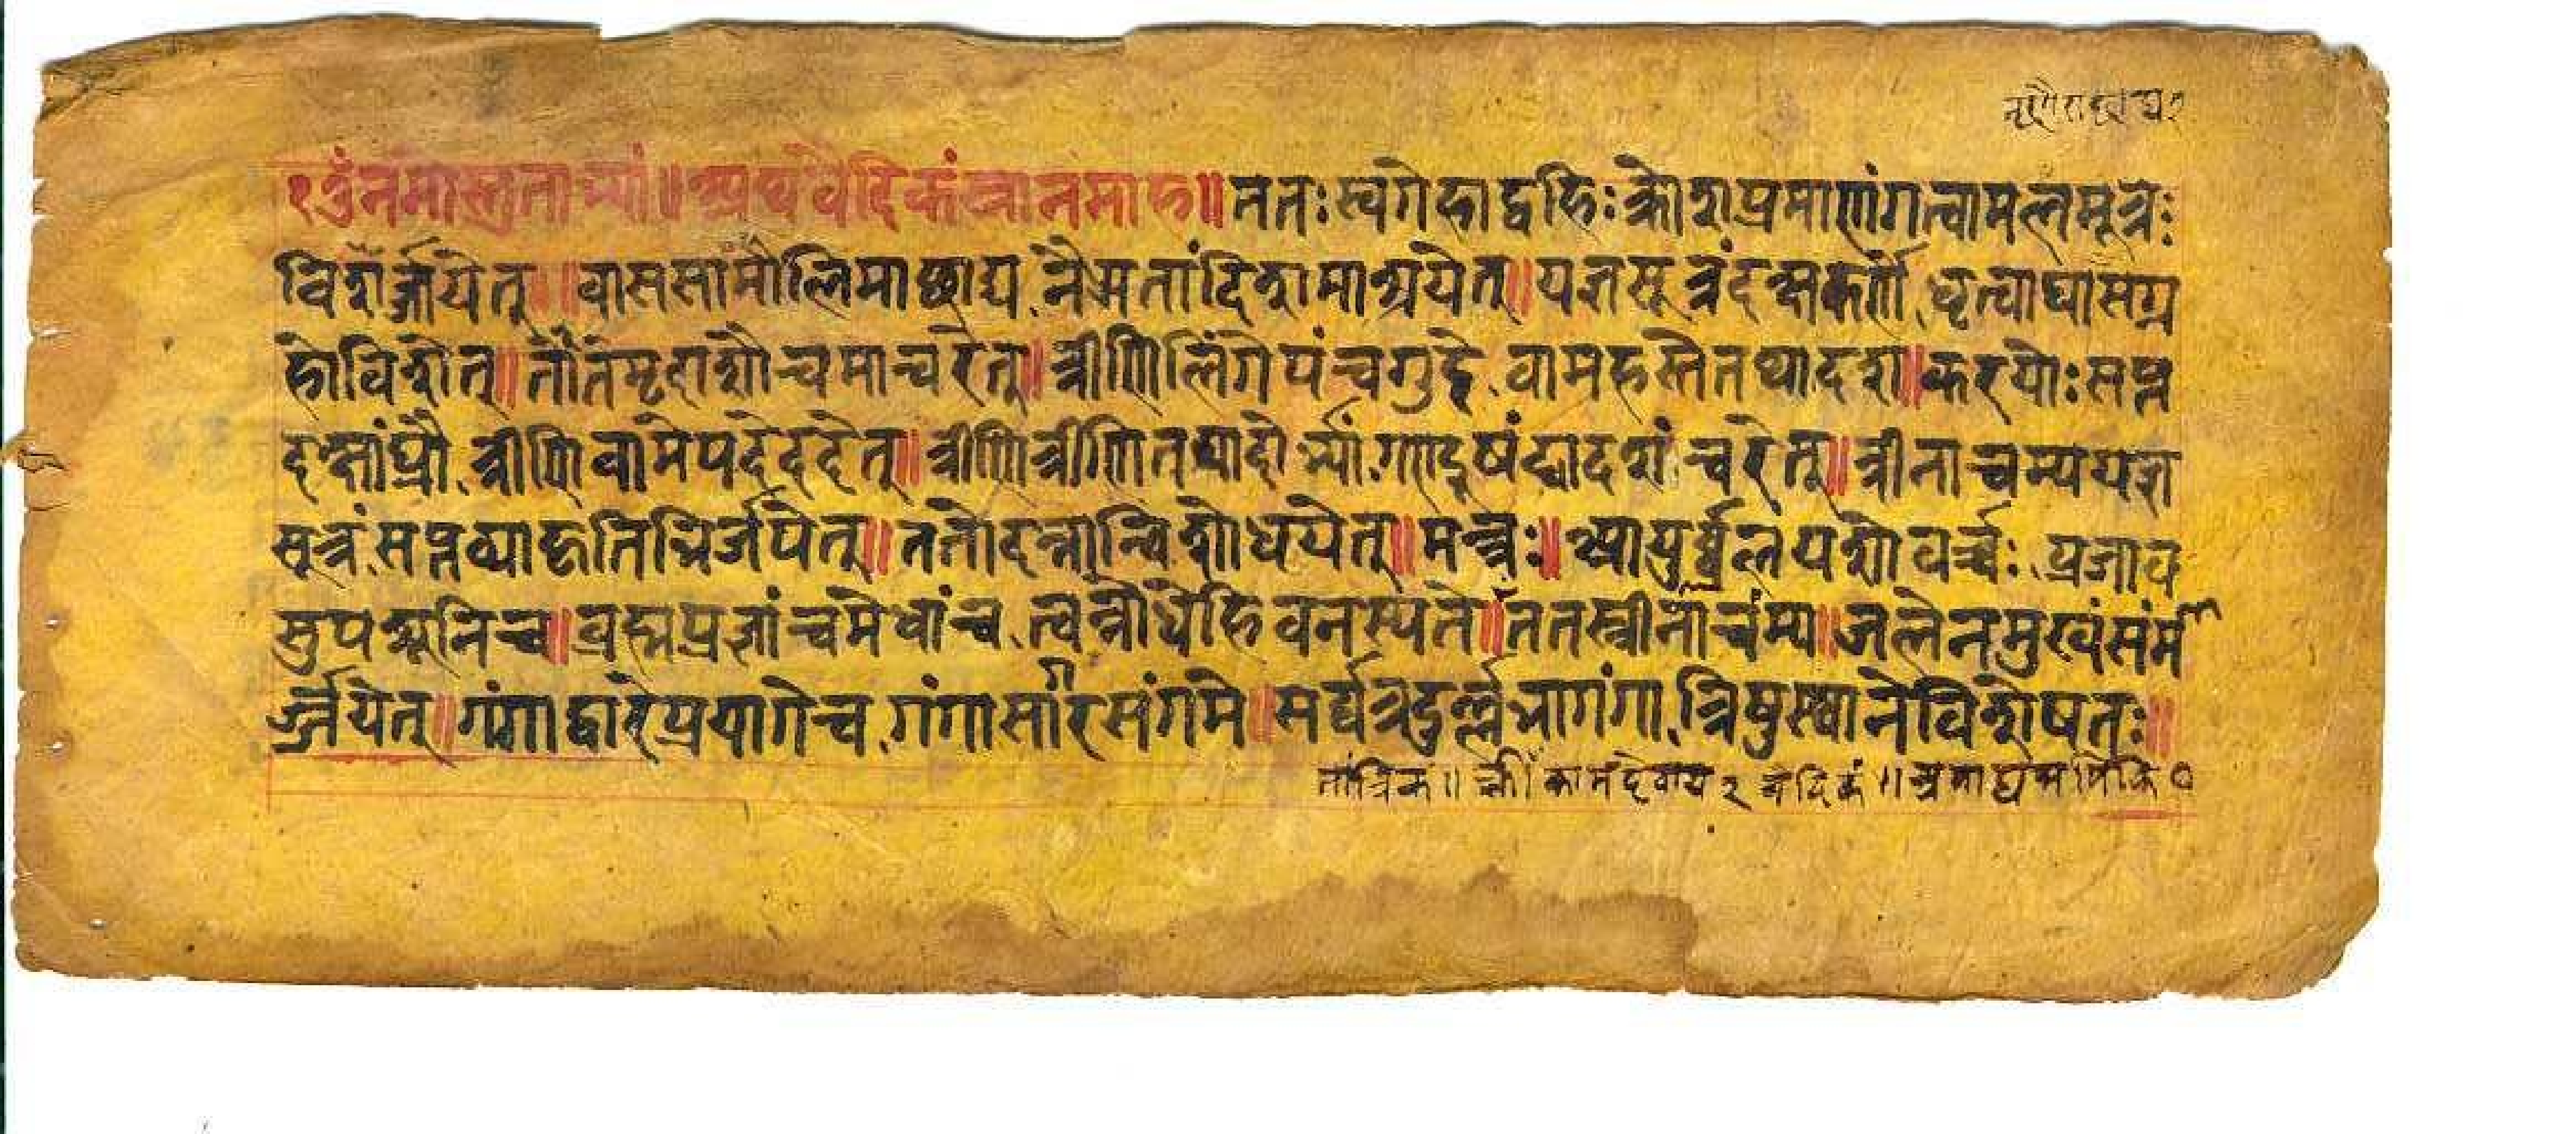 १ॐनमास्तुताभ्यां॥अथवैदिकंस्नानमाह॥ततःस्वगेहाद्वहिःक्रोशप्रमाणंगत्वामलमूत्रः
विशर्ज्जयेत्॥वाससामौलिमाछाद्य नैऋतांदिशमाश्रयेत्॥यज्ञसूत्रंदक्षकर्णे धृत्वाघासग्र
होविशेत्॥तोतंमृदाशौचमाचरेत्॥त्रीणिलिंगेपंचगुद्दे वामहस्तेतथादश॥करयोःसप्त
दक्षांघ्रौ त्रीणिवामेपदेददेत्॥त्रीणित्रीणितथादोर्भ्यां गण्दुषंद्वादशं चरेत्॥त्रीनाचम्ययज्ञ
सूत्रं सप्तव्याहृतिभिर्जपेत्॥ततोदन्तान्विशोधयेत्॥मन्त्रः॥आयुर्ब्बलंयशोवर्च्चः प्रजाव
सुपश्यूनिच॥व्रह्मप्रज्ञांचमेधांच त्वन्नोधेहिवनस्पते॥ततस्त्रीनाचंम्य॥जलेनमुखंसंमा
र्ज्जयेत्॥गंगाद्वारेप्रयागेच गंगासागरसंगमे॥सर्व्वत्रदुर्ल्लभागंगा त्रिषुस्थानेविशेषतः॥
तांत्रिक॥ क्लीं कामदेवाय २ वैदिकं॥